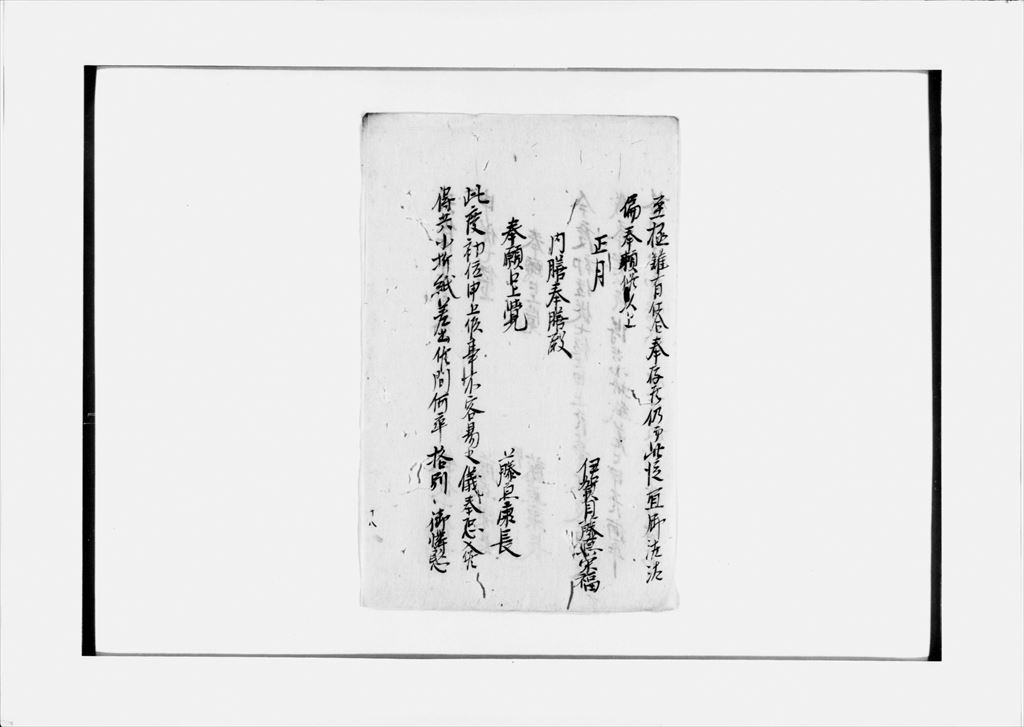 至極難有仕合奉存候仍而此段宜御沙汰
偏奉願候以上
正月
伊賀目藤原宗福
内膳奉膳殿
奉願口上覚
藤原康長
此度初位申上候事不容易之儀奉恐入候
得共小折紙差出候間何卒格別之御憐愍